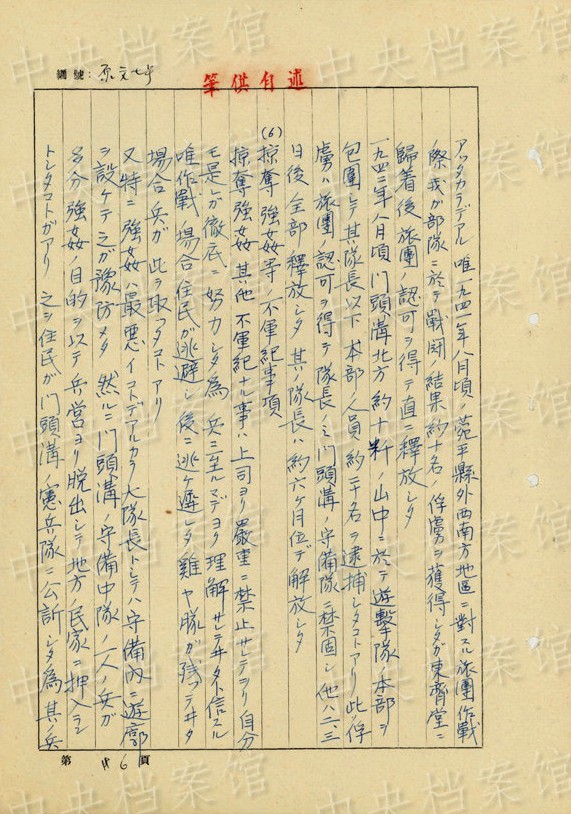 編號:
筆供自述
アッタカラデアル 唯一九四一年八月頃ノ菀平縣外西南方地區ニ對スル旅團作戰
ノ際我ガ部隊ニ於テ戰鬪ノ結果約十名ノ俘虜ヲ獲得シタガ東齊堂ニ
歸着後旅團ノ認可ヲ得テ直ニ釋放シタ
一九四二年八月頃門頭溝北方約十粁ノ山中ニ於テ遊擊隊ノ本部ヲ
包圍シテ其ノ隊長以下本部ノ人員約二十名ヲ逮捕シタコトアリ此ノ俘
虜ハ旅團ノ認可ヲ得テ隊長ノミ門頭溝ノ守備隊ニ禁固シ他ハ二、三
日後全部釋放シタ 其ノ隊長ハ約六ケ月位デ解放シタ
(6)掠奪強姦等ノ不軍紀事項
掠奪強姦其他不軍紀ナル事ハ上司ヨリ嚴重ニ禁止サレテヲリ自分
モ是レガ徹底ニ努力シタ為兵ニ至ルマデヨク理解サレテヰタト信スル
唯作戰ノ場合住民ガ逃避シ後ニ逃ケ遲レタ雞ヤ豚ガ殘ッテヰタ
場合兵ガ此ヲ取ッタコトアリ
又特ニ強姦ハ最悪イコトデアルカラ大隊長トシテハ守備內ニ遊廓
ヲ設ケテ之ガ豫防シタ 然ルニ門頭溝ノ守備中隊ノ一人ノ兵ガ
多分強姦ノ目的ヲ以テ兵營ヨリ脫出シテ地方ノ民家ニ押入ラン
トシタコトガアリ 之ヲ住民ガ門頭溝ノ憲兵隊ニ公訴シタ為其ノ兵
第 6 頁
中央档案馆